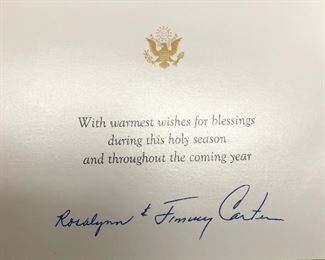 With warmest wishes for blessings
during this holy season
and throughout the coming year
Rosalynn & Jimmy Carter